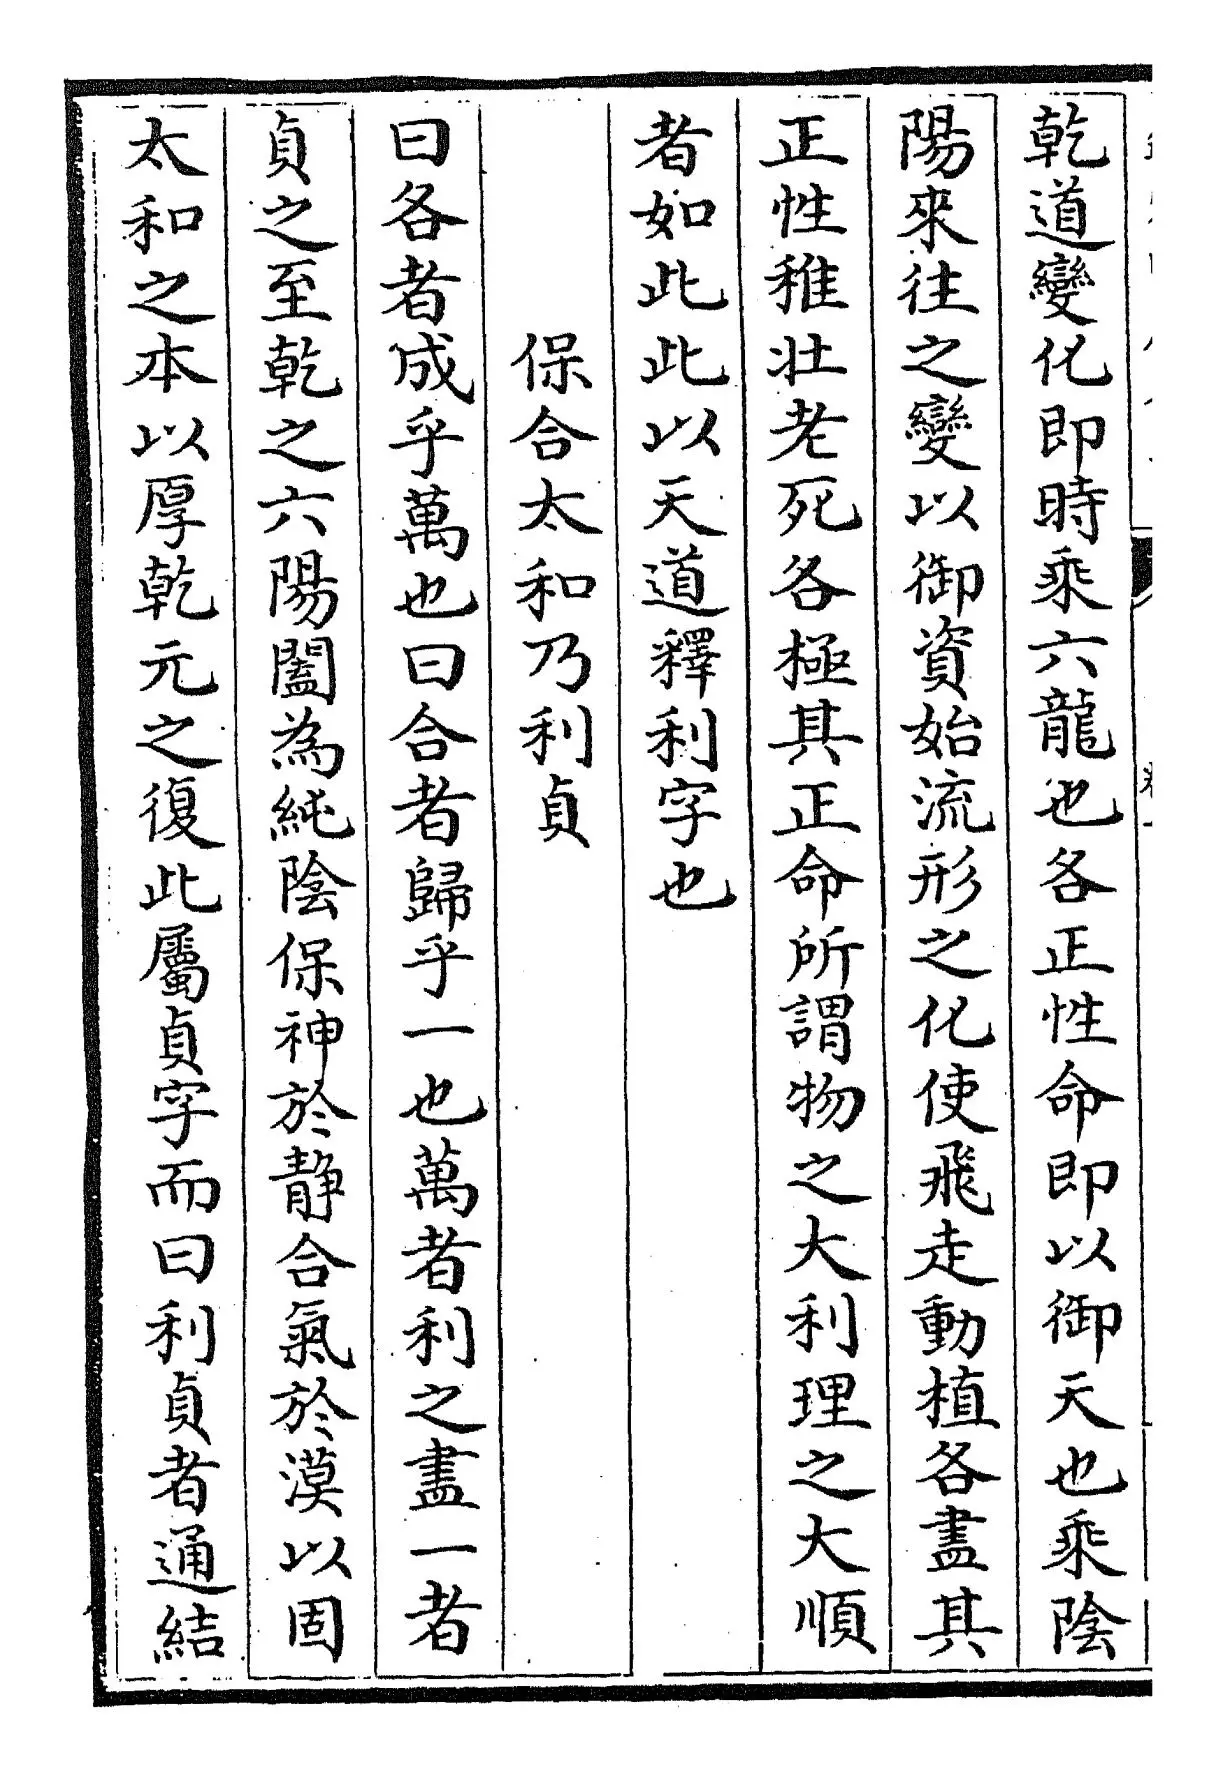 乾道變化即時乘六龍也各正性命即以御天也乘陰
陽來往之變以御資始流形之化使飛走動植各盡其
正性稚壯老死各極其正命所謂物之大利理之大順
者如此此以天道釋利字也
保合太和乃利貞
曰各者成乎萬也曰合者歸乎一也萬者利之盡一者
貞之至乾之六陽闔為純陰保神於静合氣於漠以固
太和之本以厚乾元之復此屬貞字而曰利貞者通結